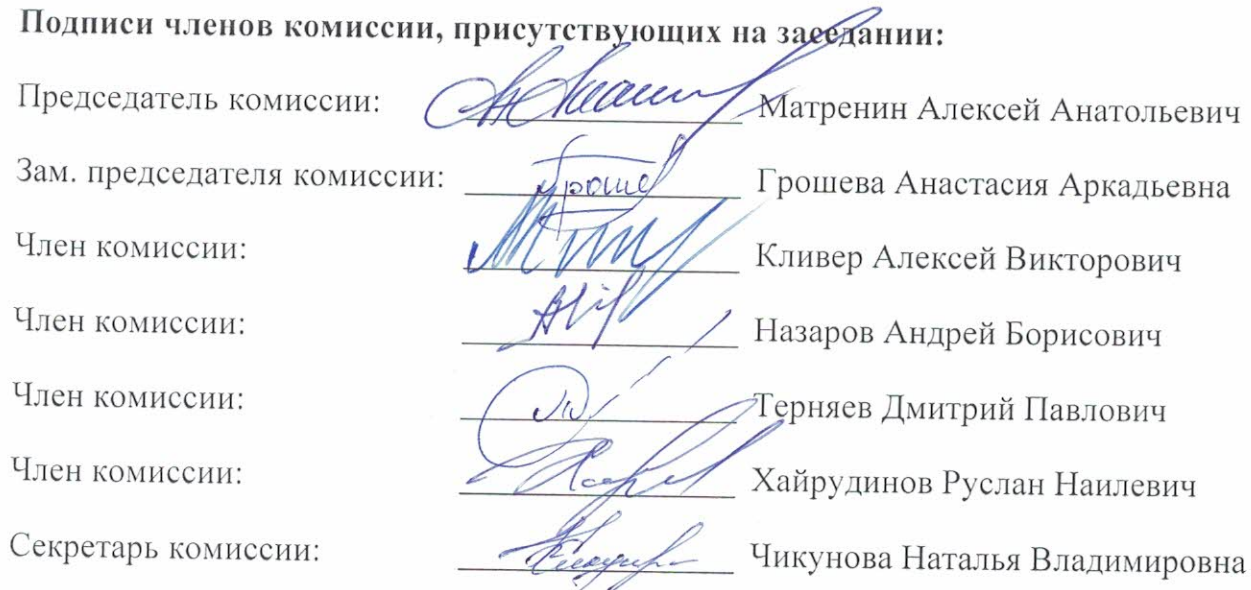 Подписи членов комиссии, присутствующих на заседании:
Председатель комиссии: Матренин Алексей Анатольевич
Зам. председателя комиссии: Грошева Анастасия Аркадьевна
Член комиссии: Кливер Алексей Викторович
Член комиссии: Назаров Андрей Борисович
Член комиссии: Терняев Дмитрий Павлович
Член комиссии: Хайрудинов Руслан Наилевич
Секретарь комиссии: Чикунова Наталья Владимировна